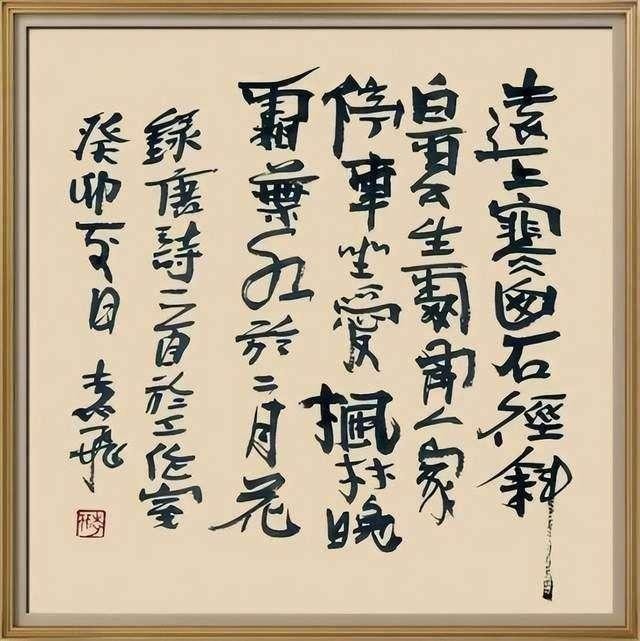 遠上寒山石徑斜
白雲生處有人家
停車坐愛楓林晚
霜葉紅於二月花
錄唐詩二首於工作室
癸卯夏日 飛